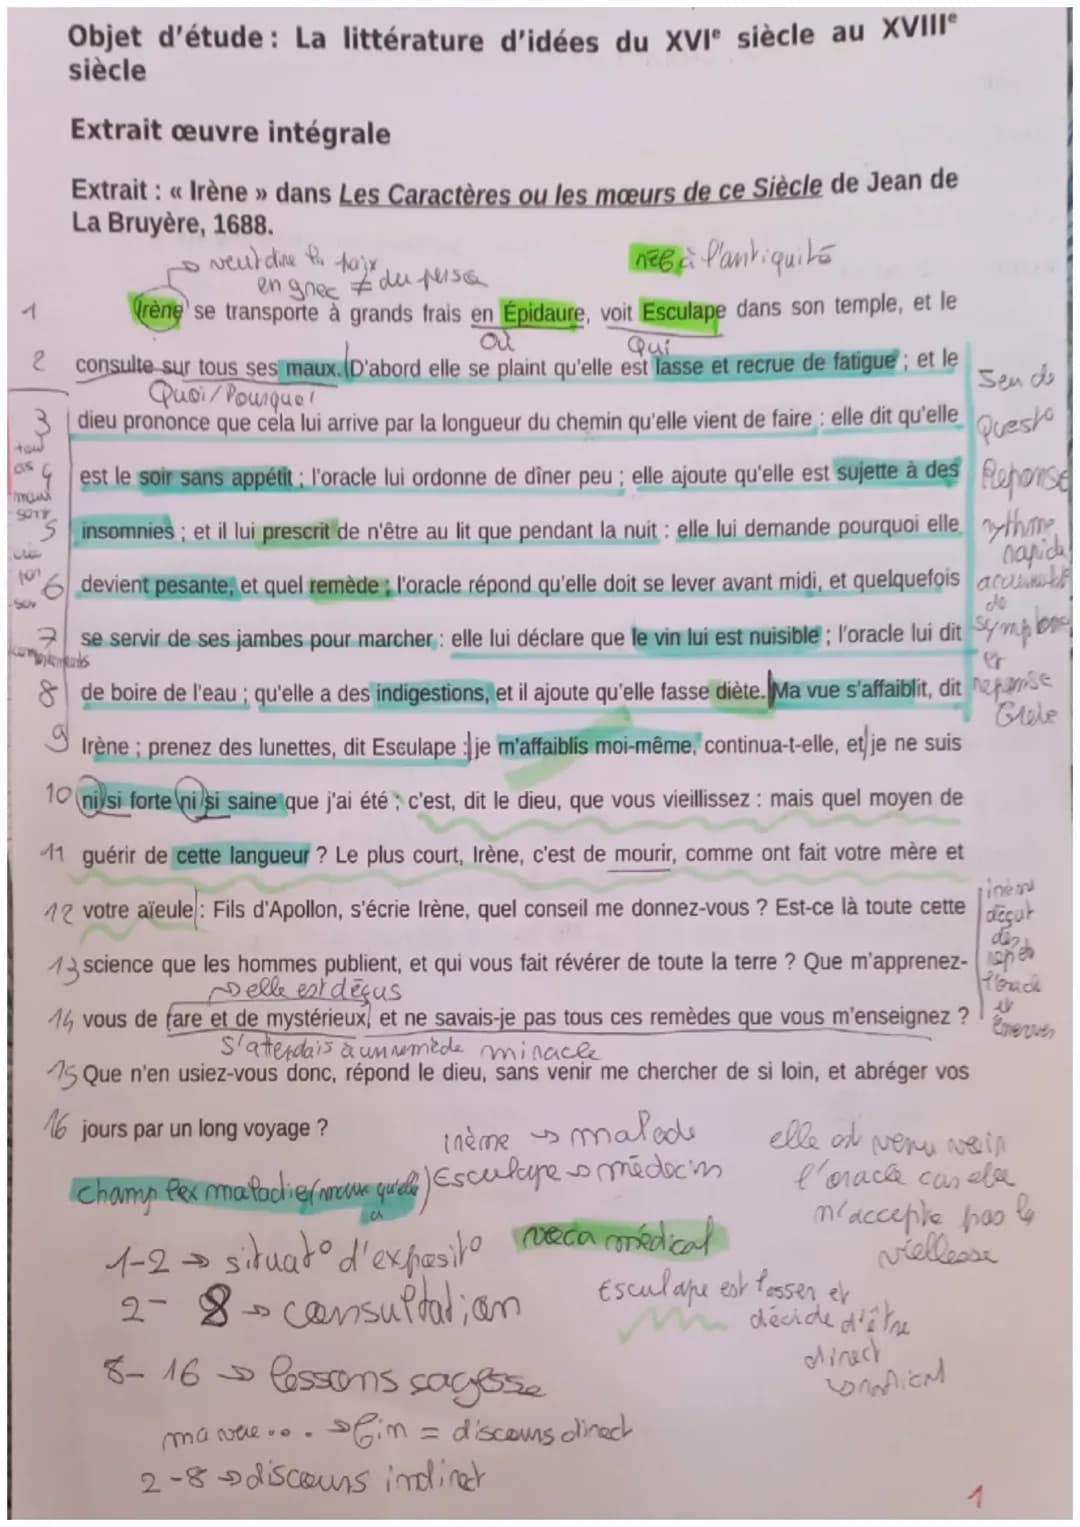 Objet d'étude : La littérature d'idées du XVIe siècle au XVIIIe
siècle
Extrait œuvre intégrale
Extrait : « Irène » dans Les Caractères ou les mœurs de ce Siècle de Jean de
La Bruyère, 1688.
veut dire la paix
en grec ≠ du perso
réf à l'antiquité
1 Irène se transporte à grands frais en Épidaure, voit Esculape dans son temple, et le
Où Qui
2 consulte sur tous ses maux. D'abord elle se plaint qu'elle est lasse et recrue de fatigue ; et le
Quoi/Pourquoi
3 dieu prononce que cela lui arrive par la longueur du chemin qu'elle vient de faire : elle dit qu'elle
4 est le soir sans appétit ; l'oracle lui ordonne de dîner peu ; elle ajoute qu'elle est sujette à des
5 insomnies ; et il lui prescrit de n'être au lit que pendant la nuit : elle lui demande pourquoi elle
6 devient pesante, et quel remède ; l'oracle répond qu'elle doit se lever avant midi, et quelquefois
7 se servir de ses jambes pour marcher : elle lui déclare que le vin lui est nuisible ; l'oracle lui dit
8 de boire de l'eau ; qu'elle a des indigestions, et il ajoute qu'elle fasse diète. Ma vue s'affaiblit, dit
9 Irène ; prenez des lunettes, dit Esculape : je m'affaiblis moi-même, continua-t-elle, et je ne suis
10 ni si forte ni si saine que j'ai été ; c'est, dit le dieu, que vous vieillissez : mais quel moyen de
11 guérir de cette langueur ? Le plus court, Irène, c'est de mourir, comme ont fait votre mère et
12 votre aïeule : Fils d'Apollon, s'écrie Irène, quel conseil me donnez-vous ? Est-ce là toute cette
13 science que les hommes publient, et qui vous fait révérer de toute la terre ? Que m'apprenez-
elle est déçus
14 vous de rare et de mystérieux, et ne savais-je pas tous ces remèdes que vous m'enseignez ?
S'attendais à un remède miracle
15 Que n'en usiez-vous donc, répond le dieu, sans venir me chercher de si loin, et abréger vos
16 jours par un long voyage ?
Questo
Reponse
rythme
rapide
de
symptome
et
reponse
déçut
des
et
irème → malade
Esculape → médecin
elle est venu voir
l'oracle car elle
n'accepte pas la
viellesse
champ lex maladie
a
véca médical
1-2 → situat° d'exposit°
Esculape est lasser et
décide d'être
direct
2-8 → consultation
8-16 → lessons sagesse
ma vue... → fin = discours direct
2-8 → discours indirect
1